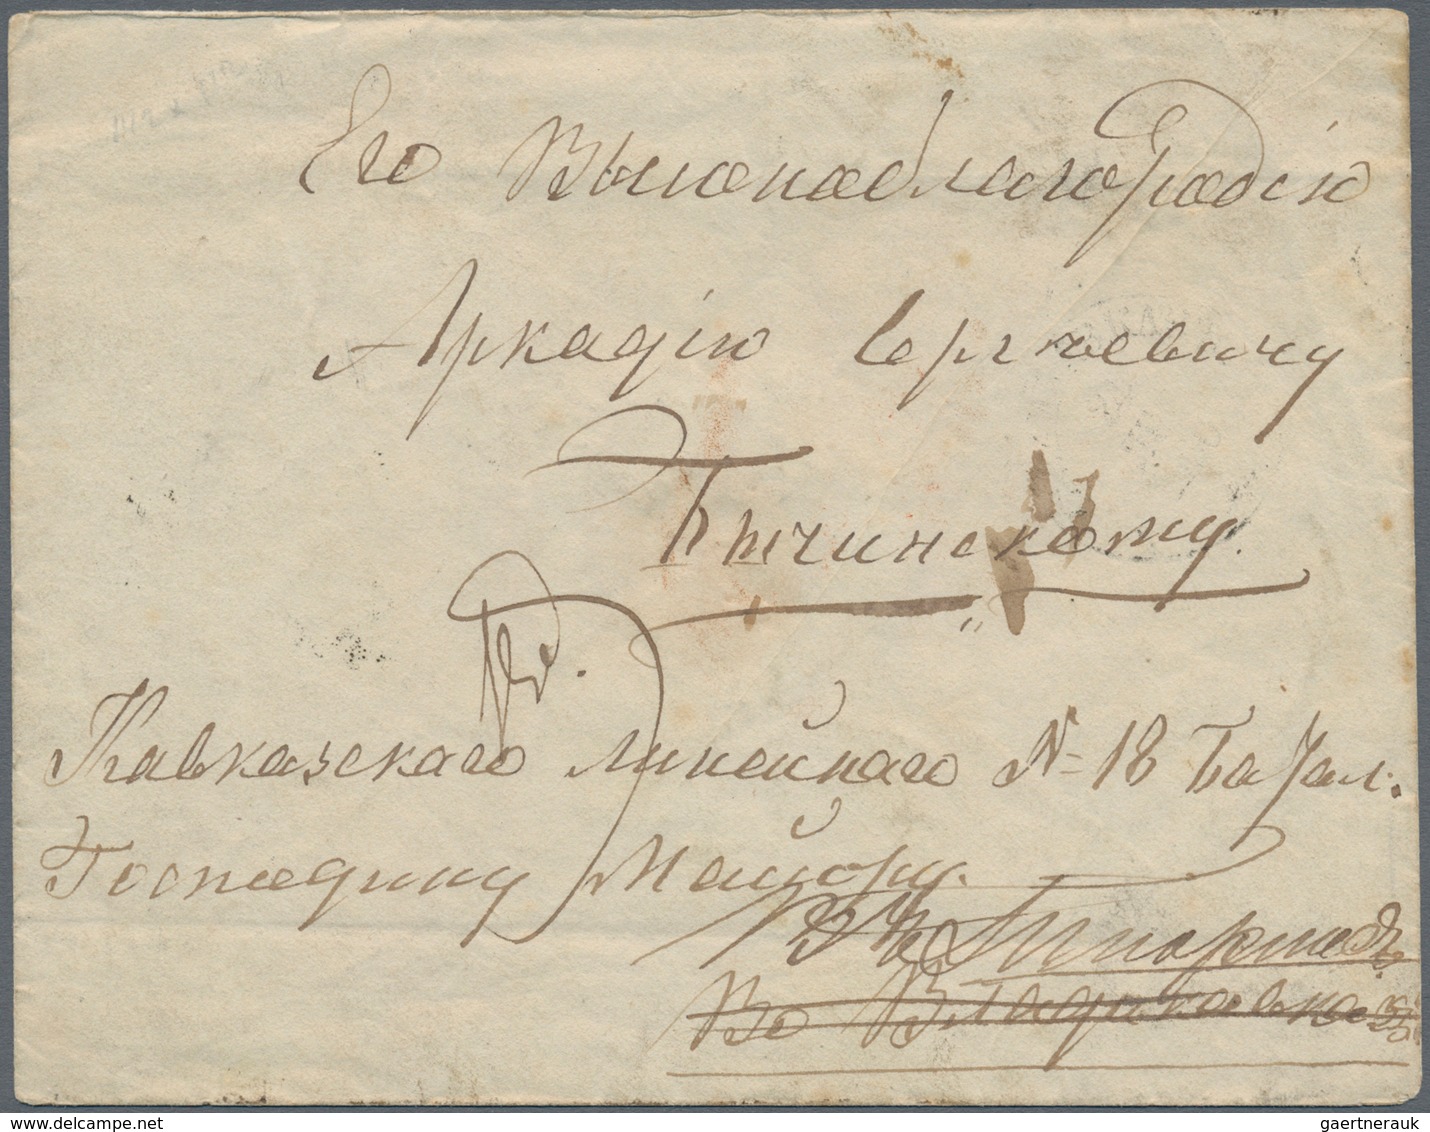 Его Высокаоблагородію
Аркадію Сергѣевичу
Бычинскому.
Кавказскаго линейнаго №-18 Батал.
Господину Маиору.
Во Владикавказъ
gaertnerauk